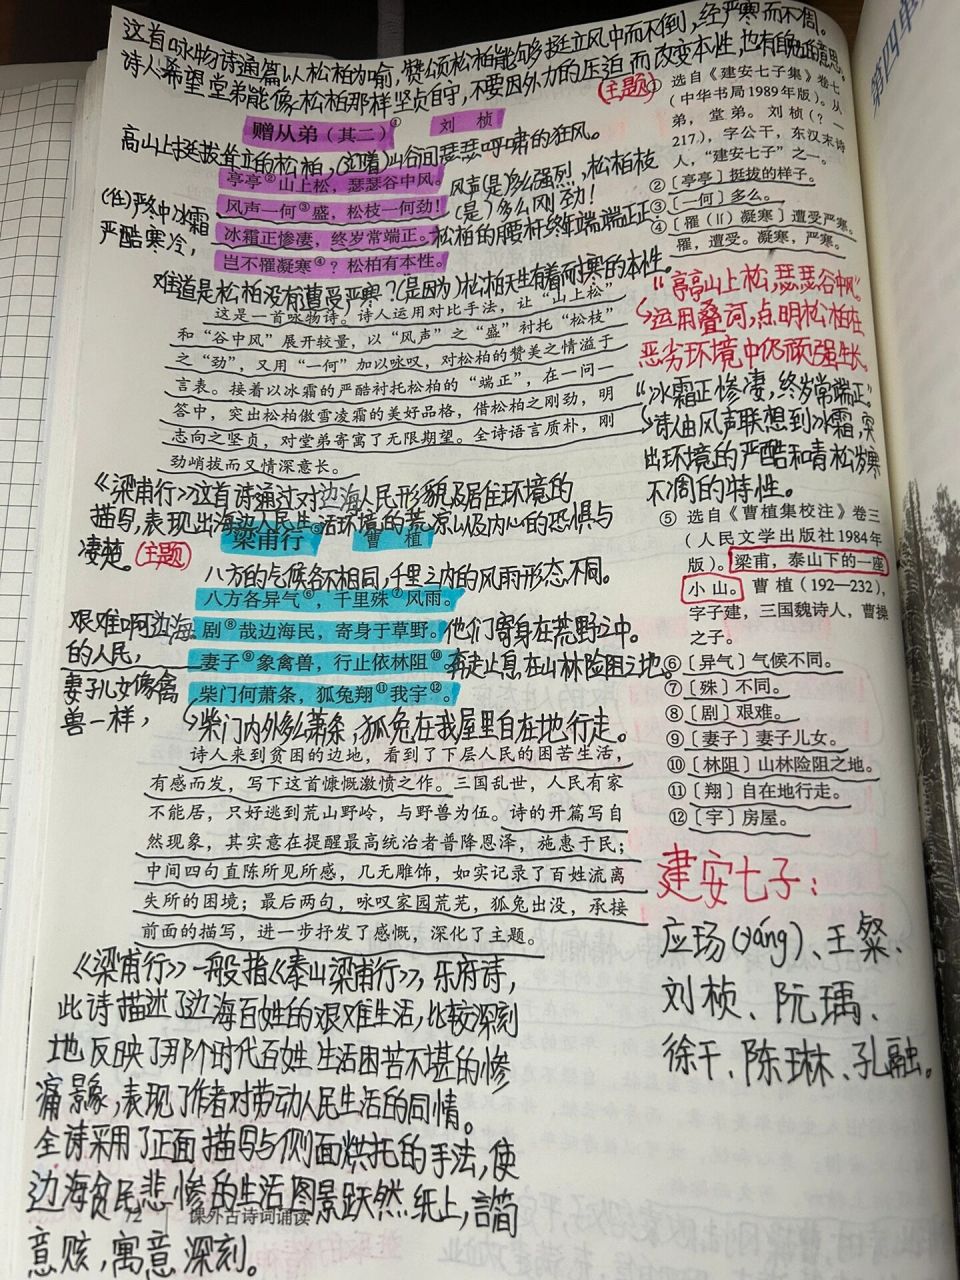 这首咏物诗通篇以松柏为喻，赞颂松柏能够挺立风中而不倒，经严寒而不凋。
诗人希望堂弟能像松柏那样坚贞自守，不要因外力的压迫而改变本性，也有自勉的意思。
(主题)
赠从弟（其二）① 刘桢
高山上挺拔耸立的松柏，(迎着)山谷间瑟瑟呼啸的狂风。
亭亭②山上松，瑟瑟谷中风。
风声(是)多么强烈，松柏枝
风声一何③盛，松枝一何劲！
(是)多么刚劲！
(在)严冬中冰霜
严酷寒冷，
冰霜正惨凄，终岁常端正。
松柏的腰杆终年端端正正。
岂不罹凝寒④？松柏有本性。
难道是松柏没有遭受严寒？(是因为)松柏天生有着耐寒的本性。
这是一首咏物诗。诗人运用对比手法，让“山上松”
和“谷中风”展开较量，以“风声”之“盛”衬托“松枝”
之“劲”，又用“一何”加以咏叹，对松柏的赞美之情溢于
言表。接着以冰霜的严酷衬托松柏的“端正”，在一问一
答中，突出松柏傲雪凌霜的美好品格，借松柏之刚劲，明
志向之坚贞，对堂弟寄寓了无限期望。全诗语言质朴，刚
劲峭拔而又情深意长。
《梁甫行》这首诗通过对边海人民形貌及居住环境的
描写，表现出海边人民生活环境的荒凉以及内心的恐惧与
凄楚。(主题)
梁甫行⑤ 曹植
八方的气候各不相同，千里之内的风雨形态不同。
八方各异气⑥，千里殊⑦风雨。
艰难啊边海
的人民，
剧⑧哉边海民，寄身于草野。
他们寄身在荒野之中。
妻子儿女像禽
兽一样，
妻子⑨象禽兽，行止依林阻⑩。
奔走止息在山林险阻之地。
柴门何萧条，狐兔翔⑪我宇⑫。
柴门内外多么萧条，狐兔在我屋里自在地行走。
诗人来到贫困的边地，看到了下层人民的困苦生活，
有感而发，写下这首慷慨激愤之作。三国乱世，人民有家
不能居，只好逃到荒山野岭，与野兽为伍。诗的开篇写自
然现象，其实意在提醒最高统治者普降恩泽，施惠于民；
中间四句直陈所见所感，几无雕饰，如实记录了百姓流离
失所的困境；最后两句，咏叹家园荒芜，狐兔出没，承接
前面的描写，进一步抒发了感慨，深化了主题。
《梁甫行》一般指《泰山梁甫行》，乐府诗，
此诗描述了边海百姓的艰难生活，比较深刻
地反映了那个时代百姓生活困苦不堪的惨
痛景象，表现了作者对劳动人民生活的同情。
全诗采用了正面描写与侧面烘托的手法，使
边海贫民悲惨的生活图景跃然纸上，言简
意赅，寓意深刻。
72 课外古诗词诵读
① 选自《建安七子集》卷七
（中华书局1989年版）。从
弟，堂弟。刘桢（？—
217），字公干，东汉末诗
人，“建安七子”之一。
②〔亭亭〕挺拔的样子。
③〔一何〕多么。
④〔罹（lí）凝寒〕遭受严寒。
罹，遭受。凝寒，严寒。
“亭亭山上松，瑟瑟谷中风”
运用叠词，点明松柏在
恶劣环境中仍顽强生长。
“冰霜正惨凄，终岁常端正。”
诗人由风声联想到冰霜，突
出环境的严酷和青松岁寒
不凋的特性。
⑤ 选自《曹植集校注》卷三
（人民文学出版社1984年
版）。梁甫，泰山下的一座
小山。曹植（192—232），
字子建，三国魏诗人，曹操
之子。
⑥〔异气〕气候不同。
⑦〔殊〕不同。
⑧〔剧〕艰难。
⑨〔妻子〕妻子儿女。
⑩〔林阻〕山林险阻之地。
⑪〔翔〕自在地行走。
⑫〔宇〕房屋。
建安七子：
应玚(yáng)、王粲、
刘桢、阮瑀、
徐干、陈琳、孔融。
第四单